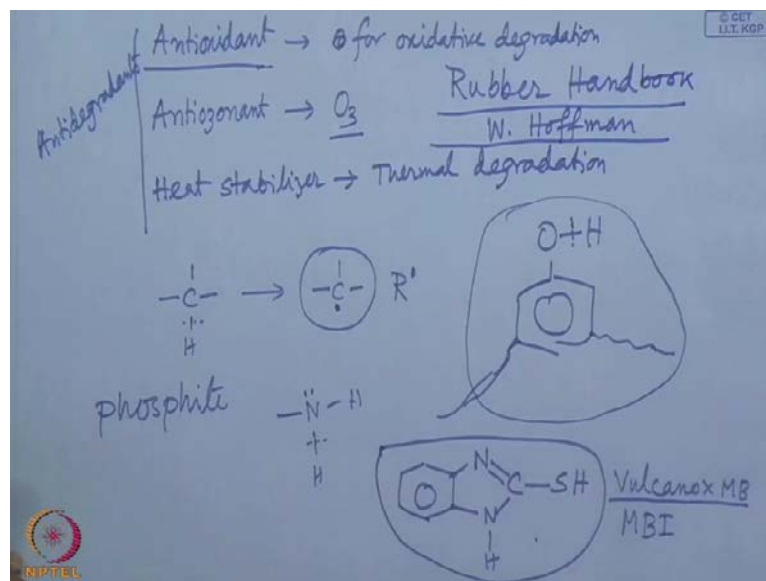 © CET
I.I.T. KGP
Antidegradants
Antioxidant → for oxidative degradation
Antiozonant → O3
Rubber Handbook
W. Hoffman
Heat stabilizer → Thermal degradation
-C- → -C- R'
H
O H
phosphite -N-H
H
N
C-SH
N
H
Vulcanox MB
MBI
NPTEL